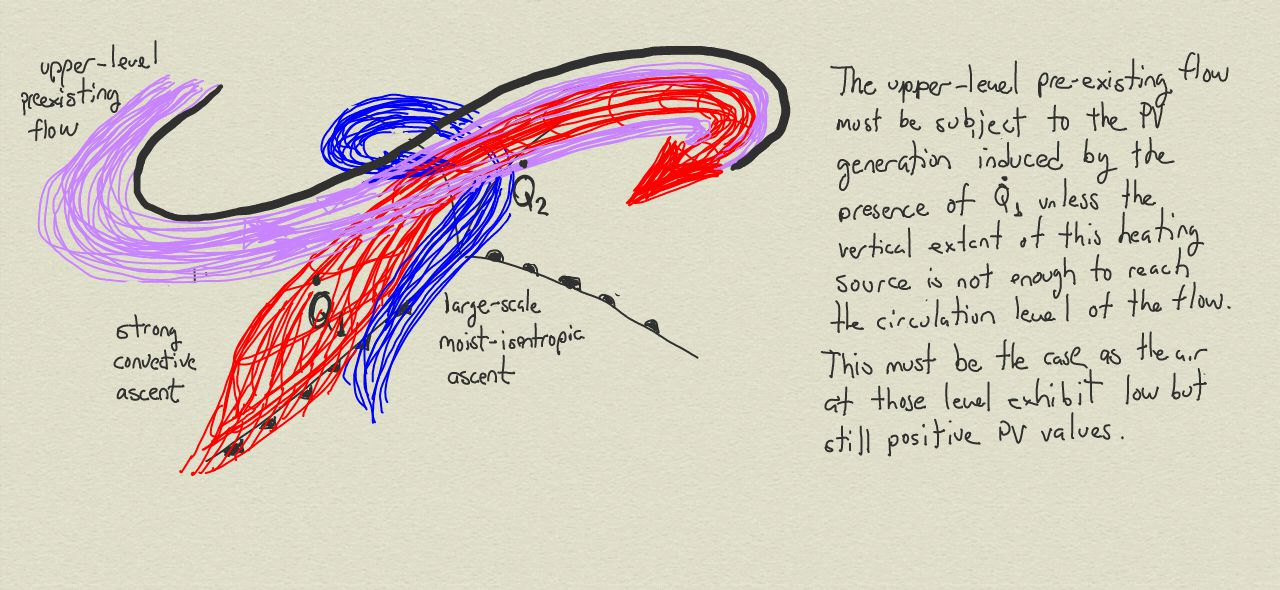 upper-level
preexisting
flow
Q̇₂
Q̇₁
strong
convective
ascent
large-scale
moist-isentropia
ascent
The upper-level pre-existing flow
must be subject to the PV
generation induced by the
presence of Q̇₁ unless the
vertical extent of this heating
source is not enough to reach
the circulation level of the flow.
This must be the case as the air
at those level exhibit low but
still positive PV values.